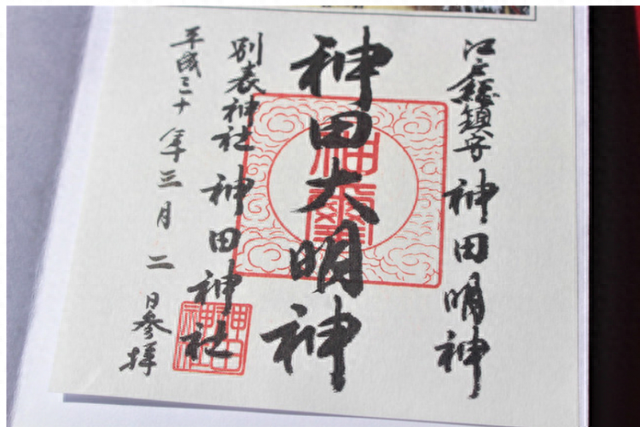 江戸總鎮守 神田明神
神田大明神
別表神社 神田神社
平成三十年三月二日参拝
神田神社